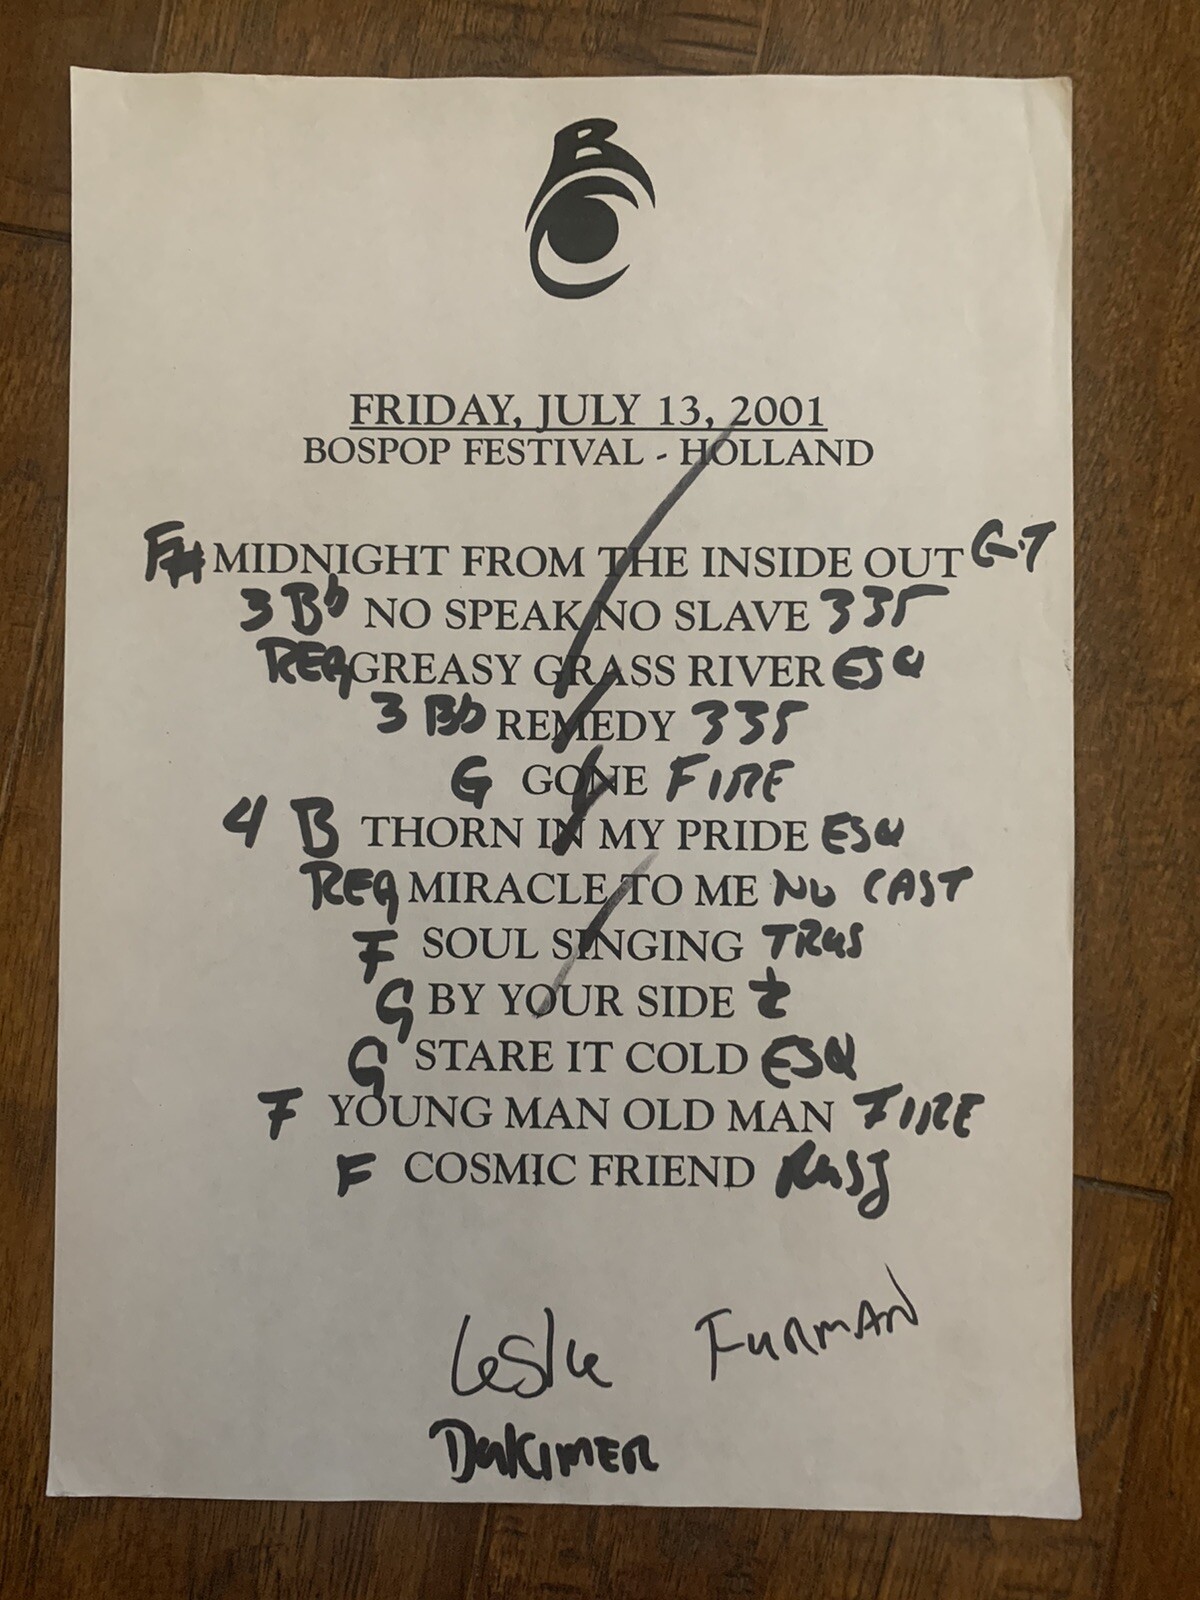 B
FRIDAY, JULY 13, 2001
BOSPOP FESTIVAL - HOLLAND
F# MIDNIGHT FROM THE INSIDE OUT G.T
3 Bb NO SPEAK NO SLAVE 335
REG GREASY GRASS RIVER ESQ
3 Bb REMEDY 335
G GONE FIRE
4 B THORN IN MY PRIDE ESQ
REG MIRACLE TO ME NU CAST
F SOUL SINGING TRUS
G BY YOUR SIDE
G STARE IT COLD ESQ
F YOUNG MAN OLD MAN FIRE
F COSMIC FRIEND
Leslie FURMAN
DulCIMER